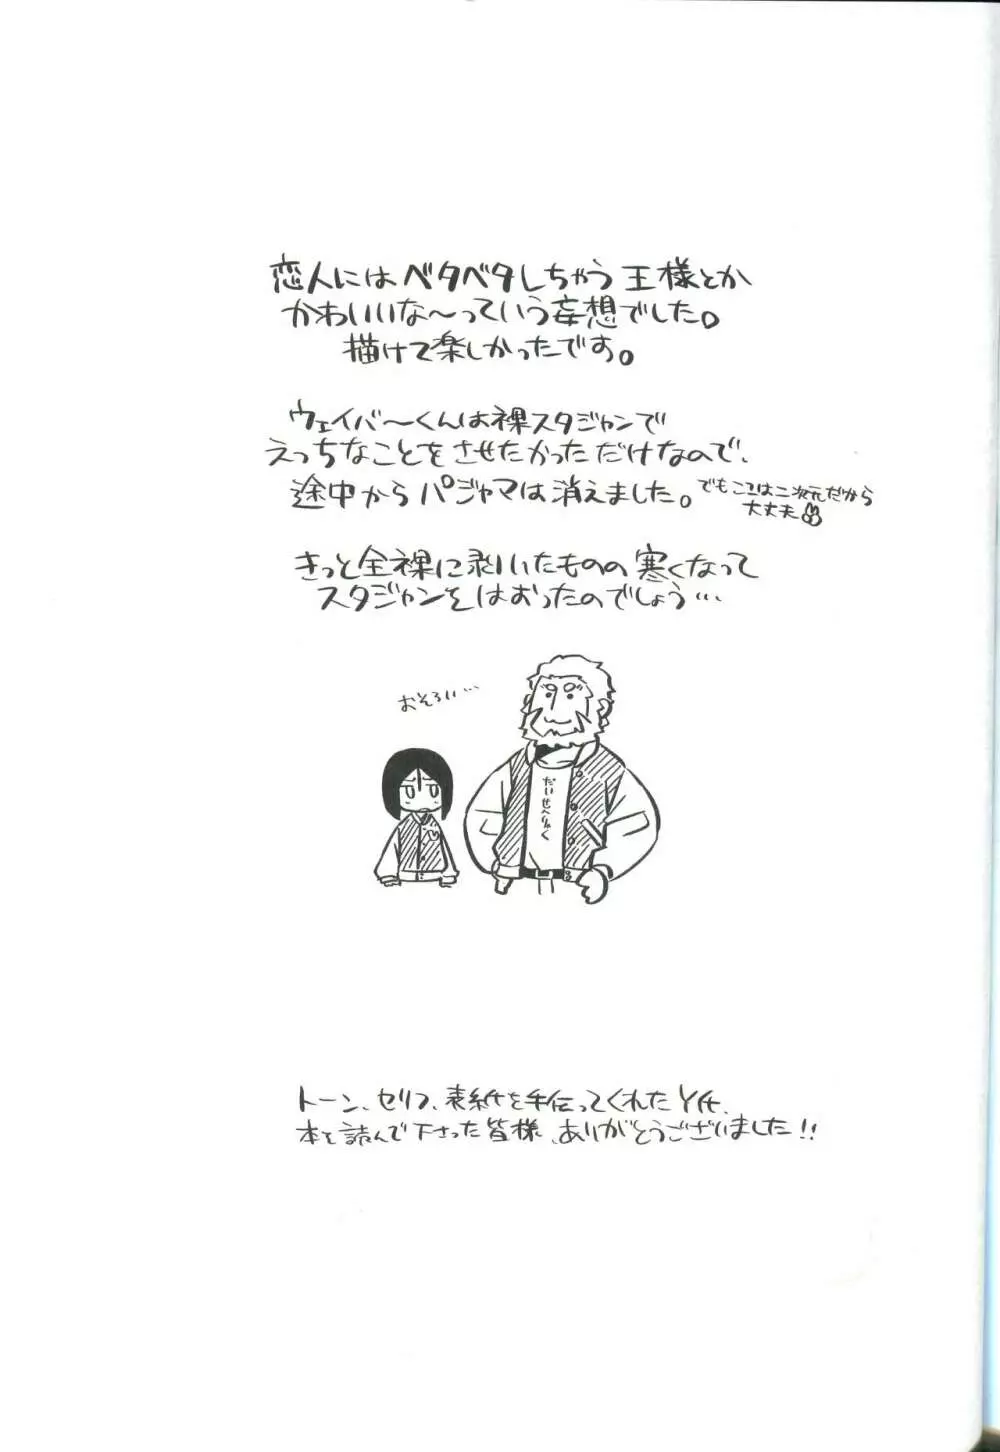 恋人にはベタベタしちゃう王様とか
かわいいな〜っていう妄想でした。
描けて楽しかったです。
ウェイバ〜くんは裸スタジャンで
えっちなことをさせたかっただけなので、
途中からパジャマは消えました。
でもここは二次元だから
大丈夫
きっと全裸に剥いたものの寒くなって
スタジャンをはおったのでしょう…
おそろい…
だいせんりゃく
トーン、セリフ、表紙を手伝ってくれたY氏、
本を読んで下さった皆様、ありがとうございました!!